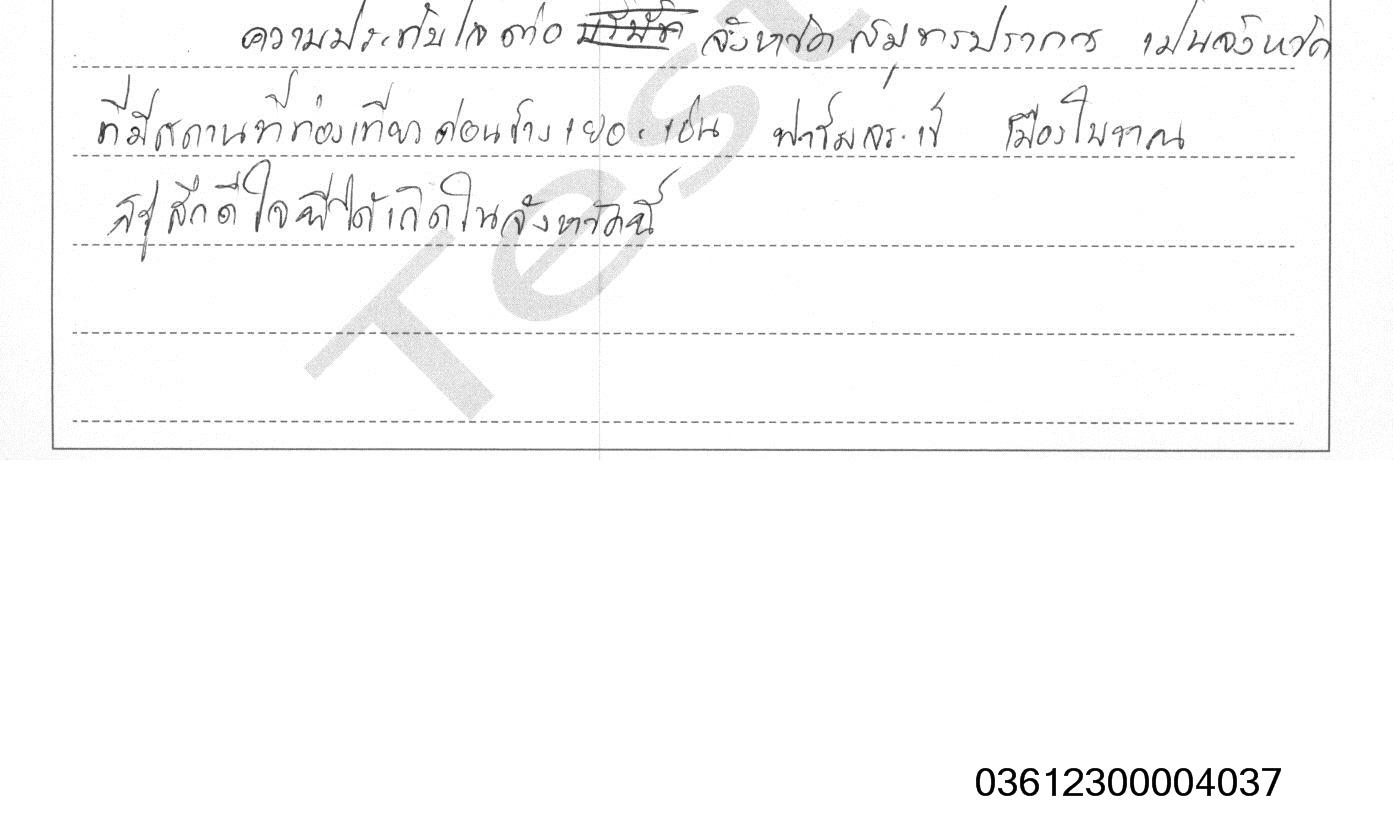 ความประทับใจต่อ จังหวัดสมุทรปราการ เป็นจังหวัด
ที่มีสถานที่ท่องเที่ยวค่อนข้างเยอะ เช่น ฟาร์มจระเข้ เมืองโบราณ
รู้สึกดีใจที่ได้เกิดในจังหวัดนี้
Test
03612300004037